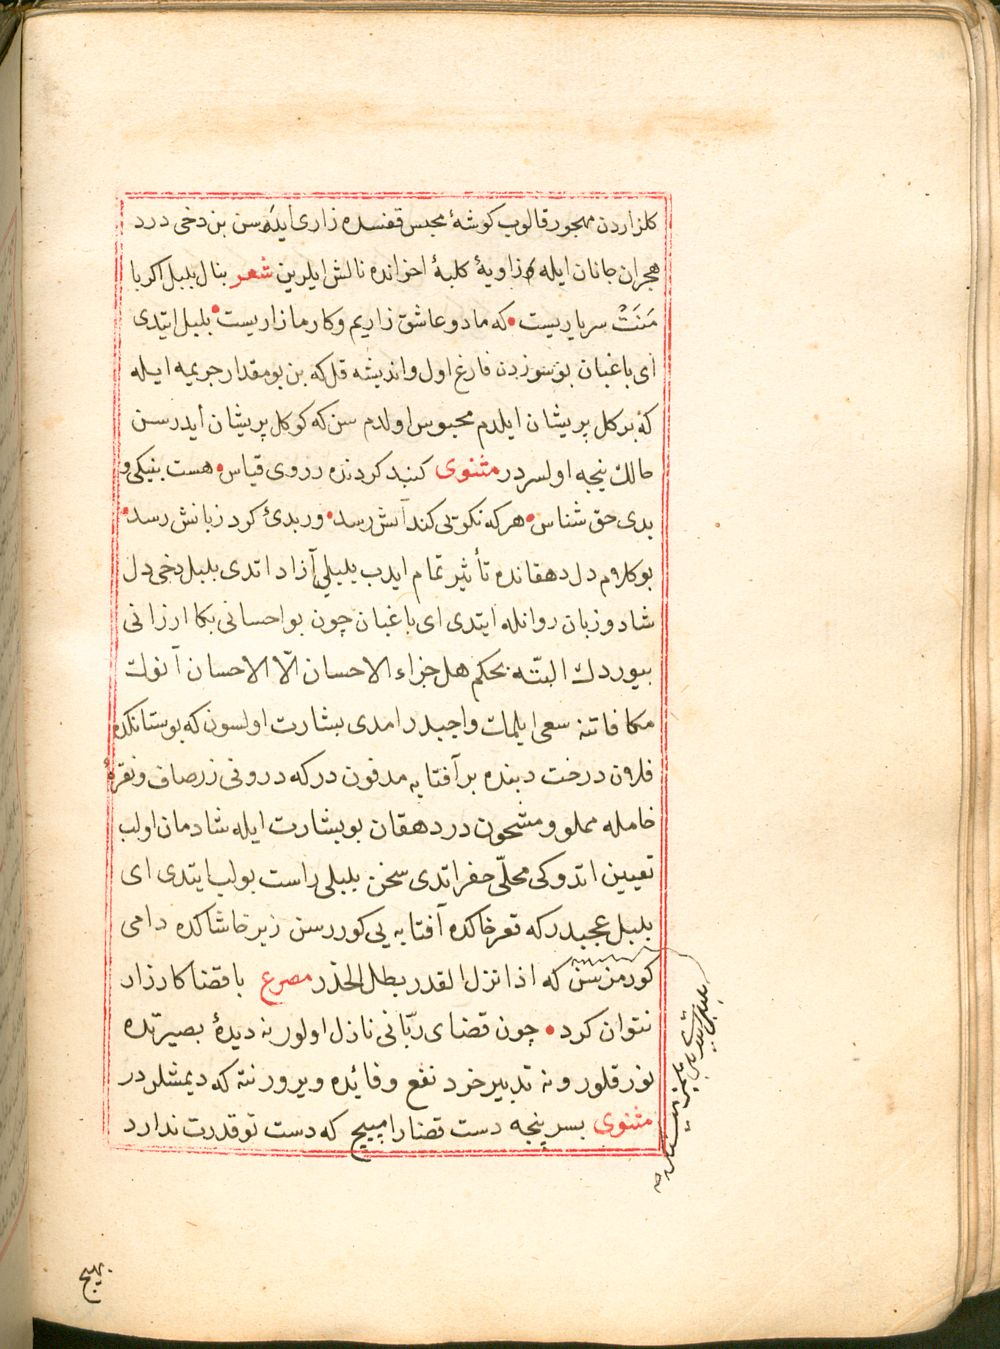 كلزاردن مهجور قالوب كوشهٔ محبس قفسده زارى ايله سن بن دخى درد
هجران جانان ايله زاويهٔ كلبهٔ احزانده نالش ايلرين شعر بنال بلبل اكر با
مَنَتْ سر ياريست • كه ما دو عاشق زاريم و كار ما زاريست • بلبل ايتدى
اى باغبان بو سوزدن فارغ اول و انديشه قل كه بن بو مقدار جريمه ايله
كه بر كل پريشان ايلدم محبوس اولدم سن كه كوكل پريشان ايدرسن
حالك نيجه اولسر در مثنوى كنبد كردنده ز روى قياس • هست بنيكى و
بدى حق شناس • هر كه نكوئى كند آنش رسد • ور بدئ كرد زيانش رسد •
بو كلام دل دهقانده تأثير تمام ايدب بلبلي آزاد اتدى بلبل دخى دل
شاد و زبان روانله ايتدى اى باغبان چون بو احسانى بكا ارزانى
بيوردك البتّه بحكم هل جزاء الاحسان الّا الاحسان آنوك
مكافاتنه سعى ايلمك واجبدر امدى بشارت اولسون كه بوستانكده
فلان درخت دبنده بر آفتابه مدفون در كه درونى زر صاف و نقرهٔ
خامله مملو و مشحون در دهقان بو بشارت ايله شادمان اولب
تعيين اتدوكى محلّى حفر اتدى سخن بلبلى راست بولب ايتدى اى
بلبل عجبدر كه قعر خاكده آفتابه يى كوررسن زير خاشاكده دامى
كورمزسن كه اذا نزل القدر بطل الحذر مصرع با قضا كارزار
نتوان كرد • چون قضاى ربّانى نازل اولور نه ديدهٔ بصيرتده
نور قلور و نه تدبير خرد نفع و فائده ويرور نته كه ديمشلردر
مثنوى بسر پنجه دست قضا را مپيچ كه دست تو قدرت ندارد
بهيچ